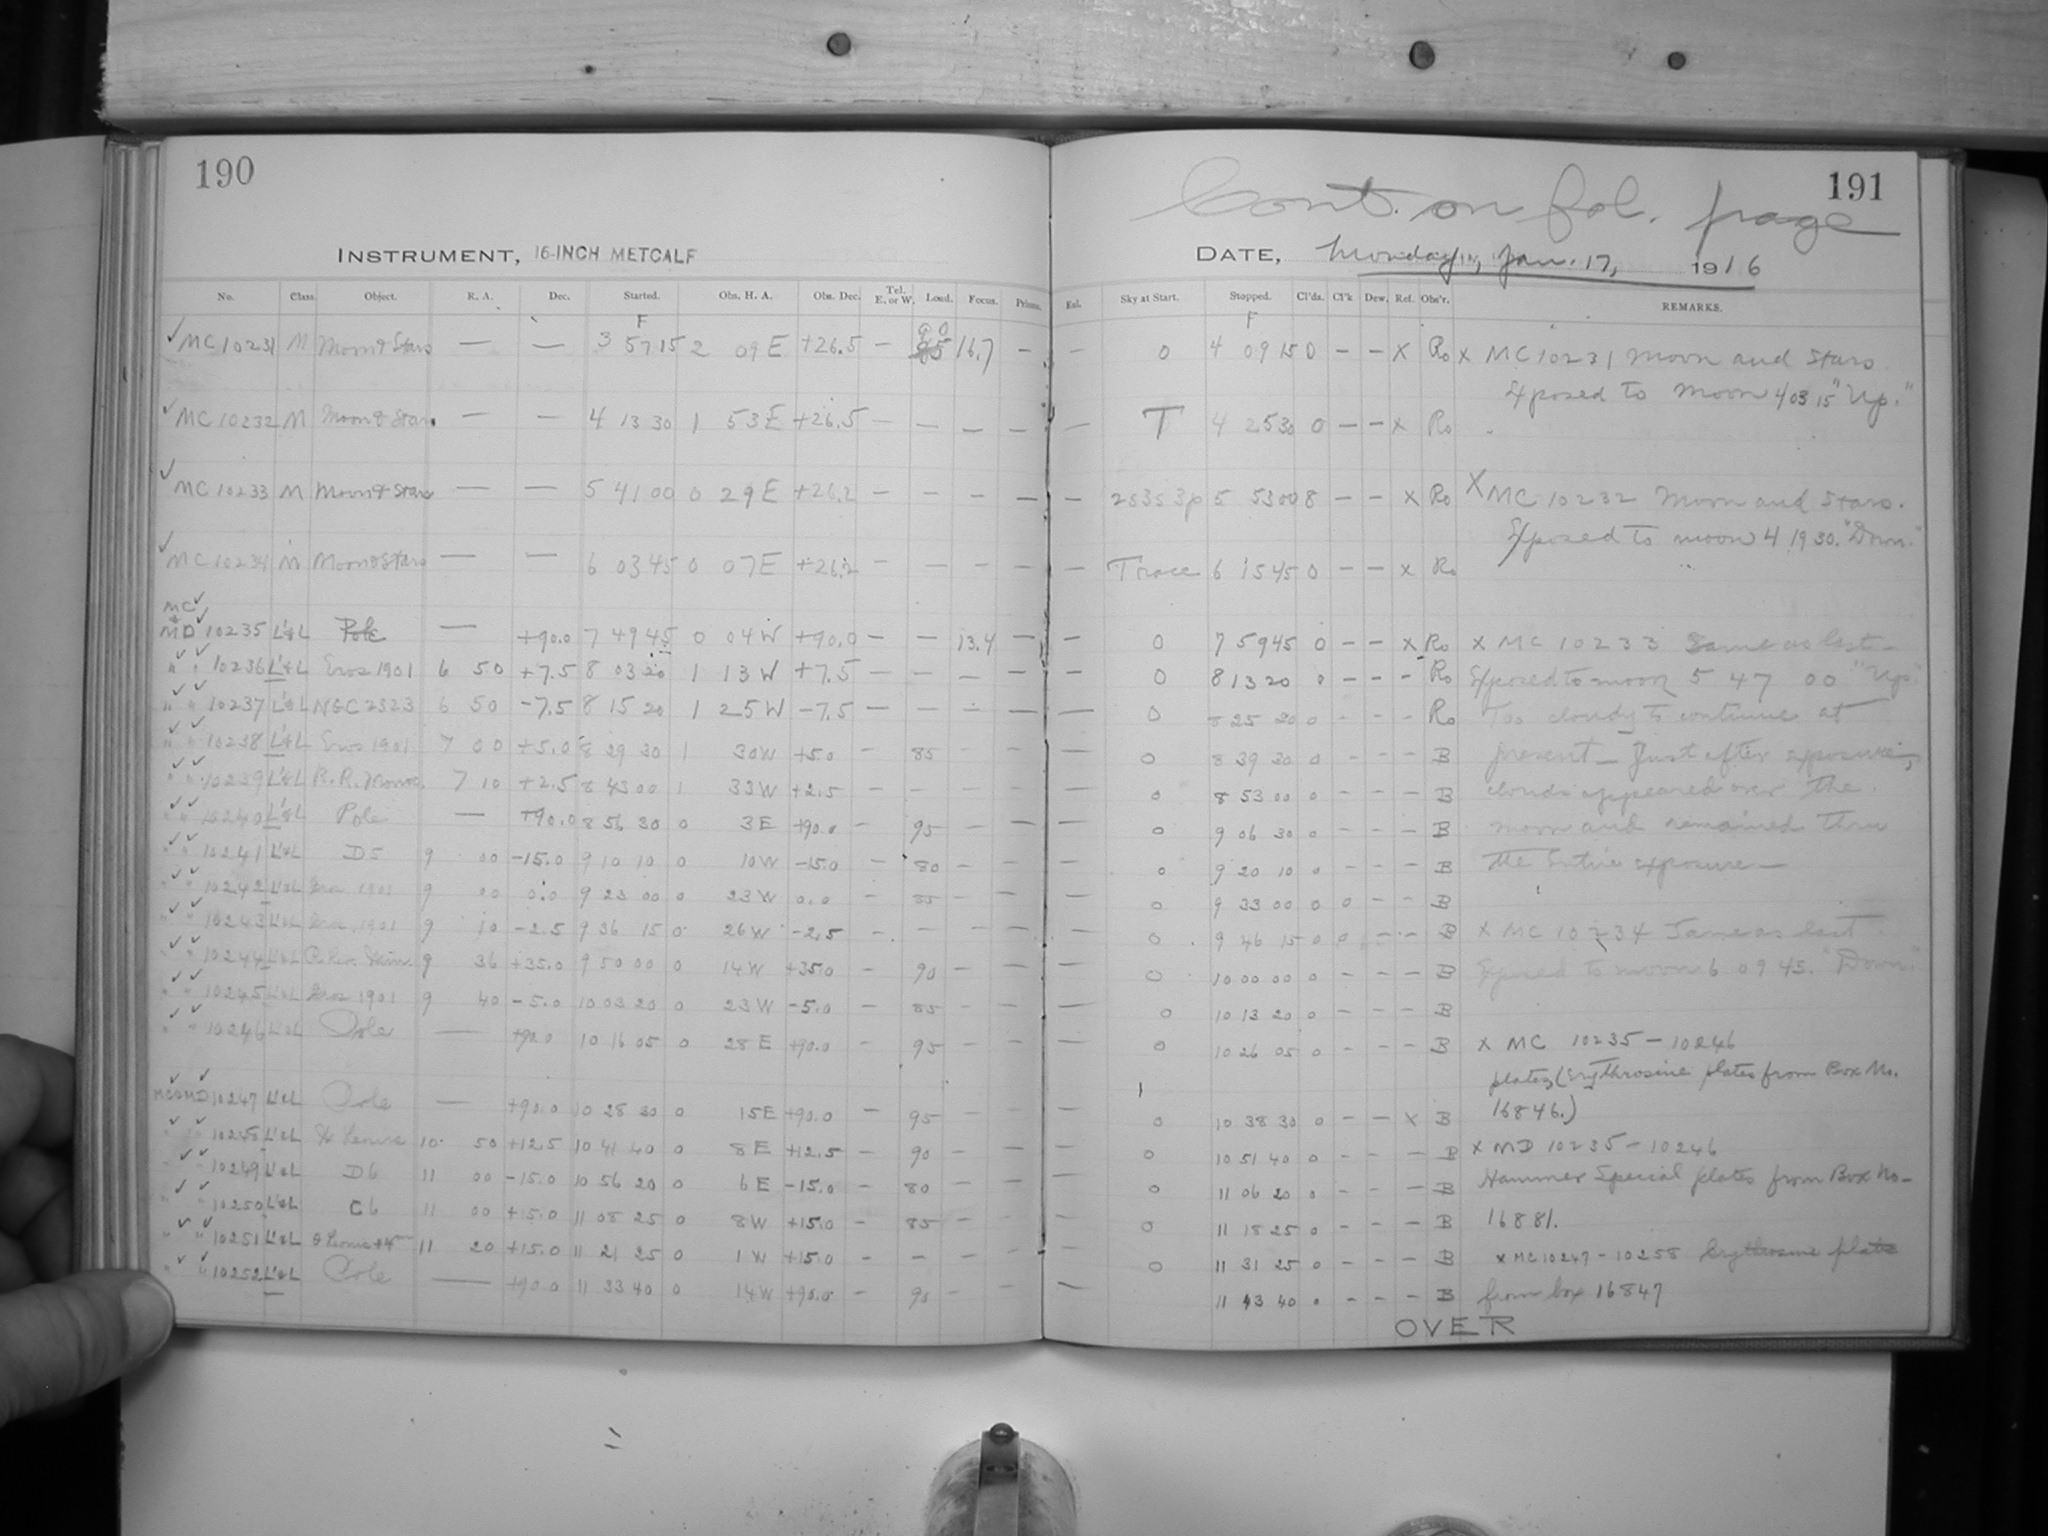 190
INSTRUMENT, 16-INCH METCALF
No. Class. Object. R. A. Dec. Started. Obs. H. A. Obs. Dec. Tel. E. or W. Load. Focus. Prisms.
F
✓ MC10231 M Moon & Stars — — 3 57 15 2 09 E +26.5 — 90 16.7 —
✓ MC 10232 M Moon & Stars — — 4 13 30 1 53 E +26.5 — — — —
✓ MC 10233 M Moon & Stars — — 5 41 00 0 29 E +26.2 — — — —
✓ MC 10234 M Moon & Stars — — 6 03 45 0 07 E +26.2 — — — —
MC ✓
& MD ✓ 10235 L'&L Pole — +90.0 7 49 45 0 04 W +90.0 — — 13.4 —
" " 10236 L'&L Eros 1901 6 50 +7.5 8 03 20 1 13 W +7.5 — — — —
" " 10237 L'&L NGC 2323 6 50 -7.5 8 15 20 1 25 W -7.5 — — — —
" " 10238 L'&L Eros 1901 7 00 +5.0 8 29 30 1 30 W +5.0 — 85 — —
" " 10239 L'&L R.R. Monoc. 7 10 +2.5 8 43 00 1 33 W +2.5 — — — —
" " 10240 L'&L Pole — +90.0 8 56 30 0 3 E +90.0 — 95 — —
" " 10241 L'&L D5 9 00 -15.0 9 10 10 0 10 W -15.0 — 80 — —
" " 10242 L'&L Eros 1901 9 00 0.0 9 23 00 0 23 W 0.0 — 85 — —
" " 10243 L'&L Eros 1901 9 10 -2.5 9 36 15 0 26 W -2.5 — — — —
" " 10244 L'&L 9 36 +35.0 9 50 00 0 14 W +35.0 — 90 — —
" " 10245 L'&L Eros 1901 9 40 -5.0 10 03 20 0 23 W -5.0 — 85 — —
" " 10246 L'&L Pole — +90.0 10 16 05 0 28 E +90.0 — 95 — —
MC&MD 10247 L'&L Pole — +90.0 10 28 30 0 15 E +90.0 — 95 — —
" " 10248 L'&L 10 50 +12.5 10 41 40 0 8 E +12.5 — 90 — —
" " 10249 L'&L D6 11 00 -15.0 10 56 20 0 6 E -15.0 — 80 — —
" " 10250 L'&L C6 11 00 +15.0 11 08 25 0 8 W +15.0 — 85 — —
" " 10251 L'&L 11 20 +15.0 11 21 25 0 1 W +15.0 — — — —
" " 10252 L'&L Pole — +90.0 11 33 40 0 14 W +90.0 — 90 — —
191
Cont. on fol. page
DATE, Monday, Jan. 17, 1916
Exl. Sky at Start. Stopped. Cl'ds. Cl'k Dew. Ref. Obs'r. REMARKS.
F
— 0 4 09 15 0 — — X Ro x MC 10231 Moon and Stars
Exposed to Moon 4 03 15 "Up."
— T 4 25 30 0 — — x Ro
— 2s3s3p 5 53 00 8 — — x Ro X MC 10232 Moon and Stars.
Exposed to moon 4 19 30. "Down."
— Trace 6 15 45 0 — — x Ro
0 7 59 45 0 — — x Ro x MC 10233 Same as last —
0 8 13 20 0 — — — Ro Exposed to moon 5 47 00 "Up."
— 0 8 25 20 0 — — — Ro Too cloudy to continue at
— 0 8 39 30 0 — — — B present — Just after exposure,
— 0 8 53 00 0 — — — B clouds appeared over the
— 0 9 06 30 0 — — — B moon and remained thru
— 0 9 20 10 0 — — — B the entire exposure —
— 0 9 33 00 0 0 — — B
— 0 9 46 15 0 0 — — B x MC 10234 Same as last
— 0 10 00 00 0 — — — B Exposed to moon 6 09 45. "Down."
— 0 10 13 20 0 — — — B
— 0 10 26 05 0 — — — B x MC 10235 — 10246
plates (Erythrosine plates from Box No.
16846.)
— 0 10 38 30 0 — — X B
— 0 10 51 40 0 — — — B x MD 10235 — 10246
— 0 11 06 20 0 — — — B Hammer Special plates from Box No —
— 0 11 18 25 0 — — — B 16881.
— 0 11 31 25 0 — — — B x MC 10247 - 10258 Erythrosine plate
— 11 43 40 0 — — — B from box 16847
OVER